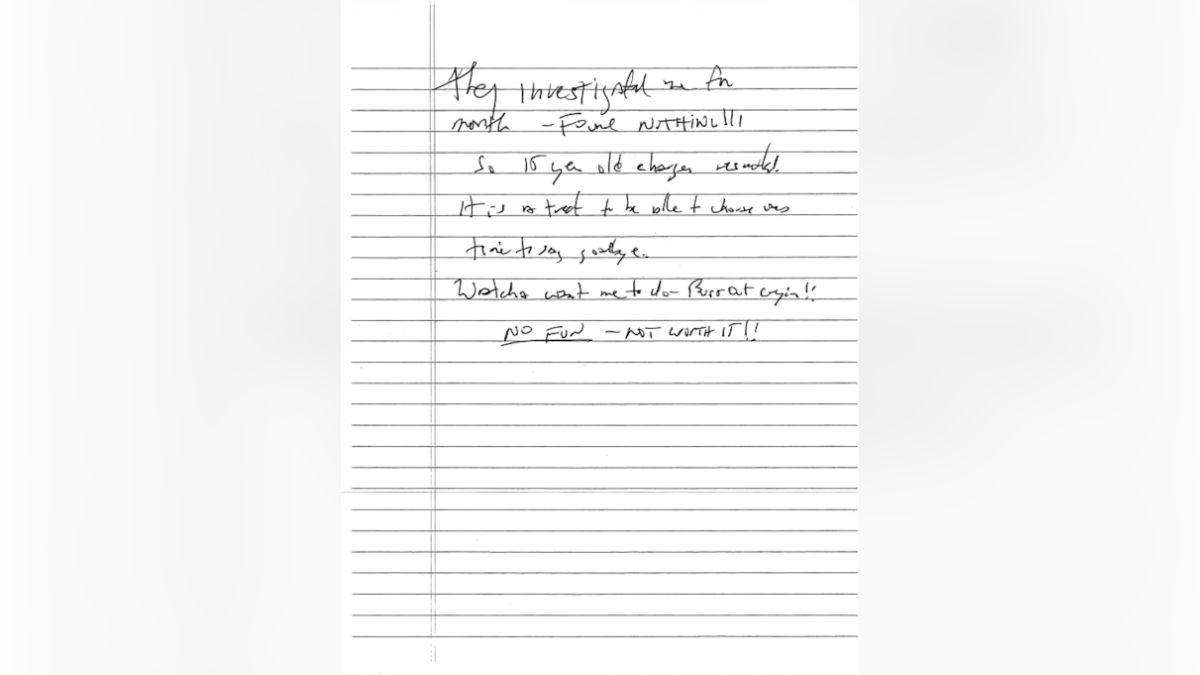 They investigated me for
month — Found NOTHING!!!
So 15 year old charges resulted.
It is a treat to be able to choose
time to say goodbye.
Watcha want me to do — Burst out cryin!!
NO FUN — NOT WORTH IT!!